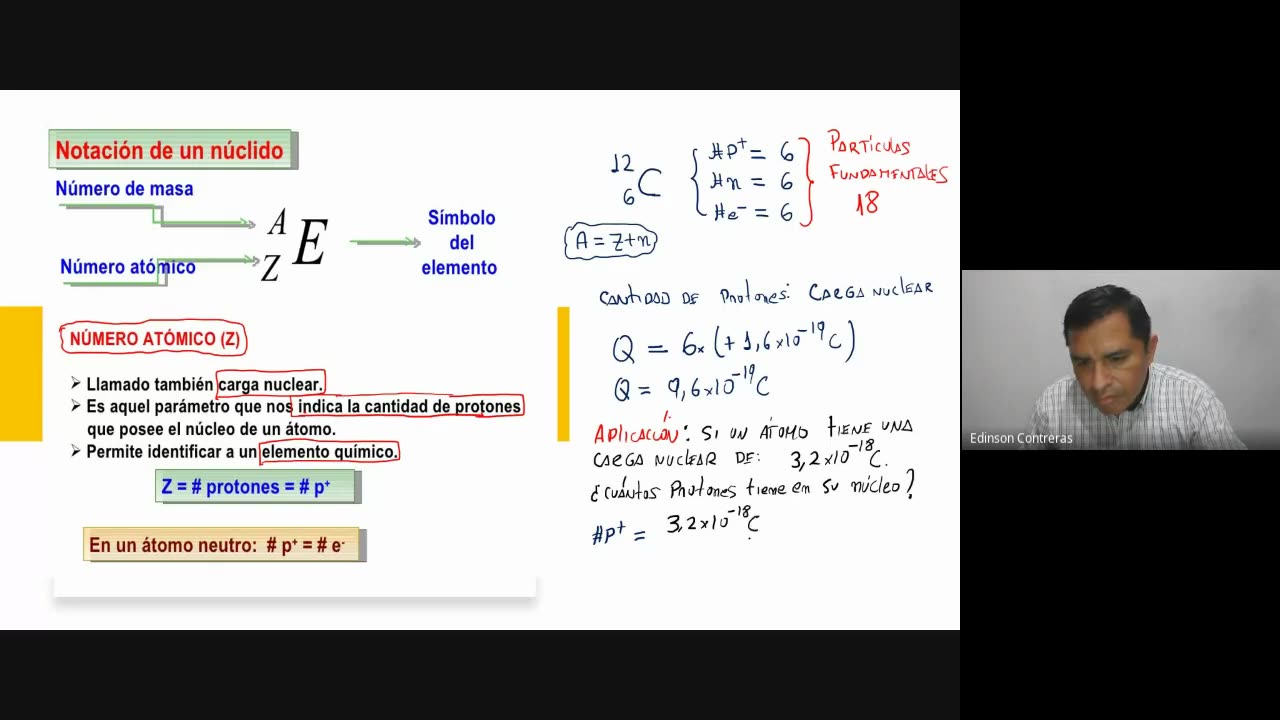 Notación de un núclido
Número de masa
A
E
Z
Número atómico
Símbolo
del
elemento
NÚMERO ATÓMICO (Z)
Llamado también carga nuclear.
Es aquel parámetro que nos indica la cantidad de protones
que posee el núcleo de un átomo.
Permite identificar a un elemento químico.
Z = # protones = # p⁺
En un átomo neutro: # p⁺ = # e⁻
¹²₆C
#P⁺ = 6
#n = 6
#e⁻ = 6
PARTÍCULAS
FUNDAMENTALES
18
A = Z+n
CANTIDAD DE PROTONES: CARGA NUCLEAR
Q = 6x (+ 1,6x10⁻¹⁹C)
Q = 9,6x10⁻¹⁹C
APLICACIÓN: SI UN ÁTOMO TIENE UNA
CARGA NUCLEAR DE: 3,2x10⁻¹⁸C.
¿CUÁNTOS PROTONES TIENE EN SU NÚCLEO?
#P⁺ = 3,2x10⁻¹⁸C
Edinson Contreras